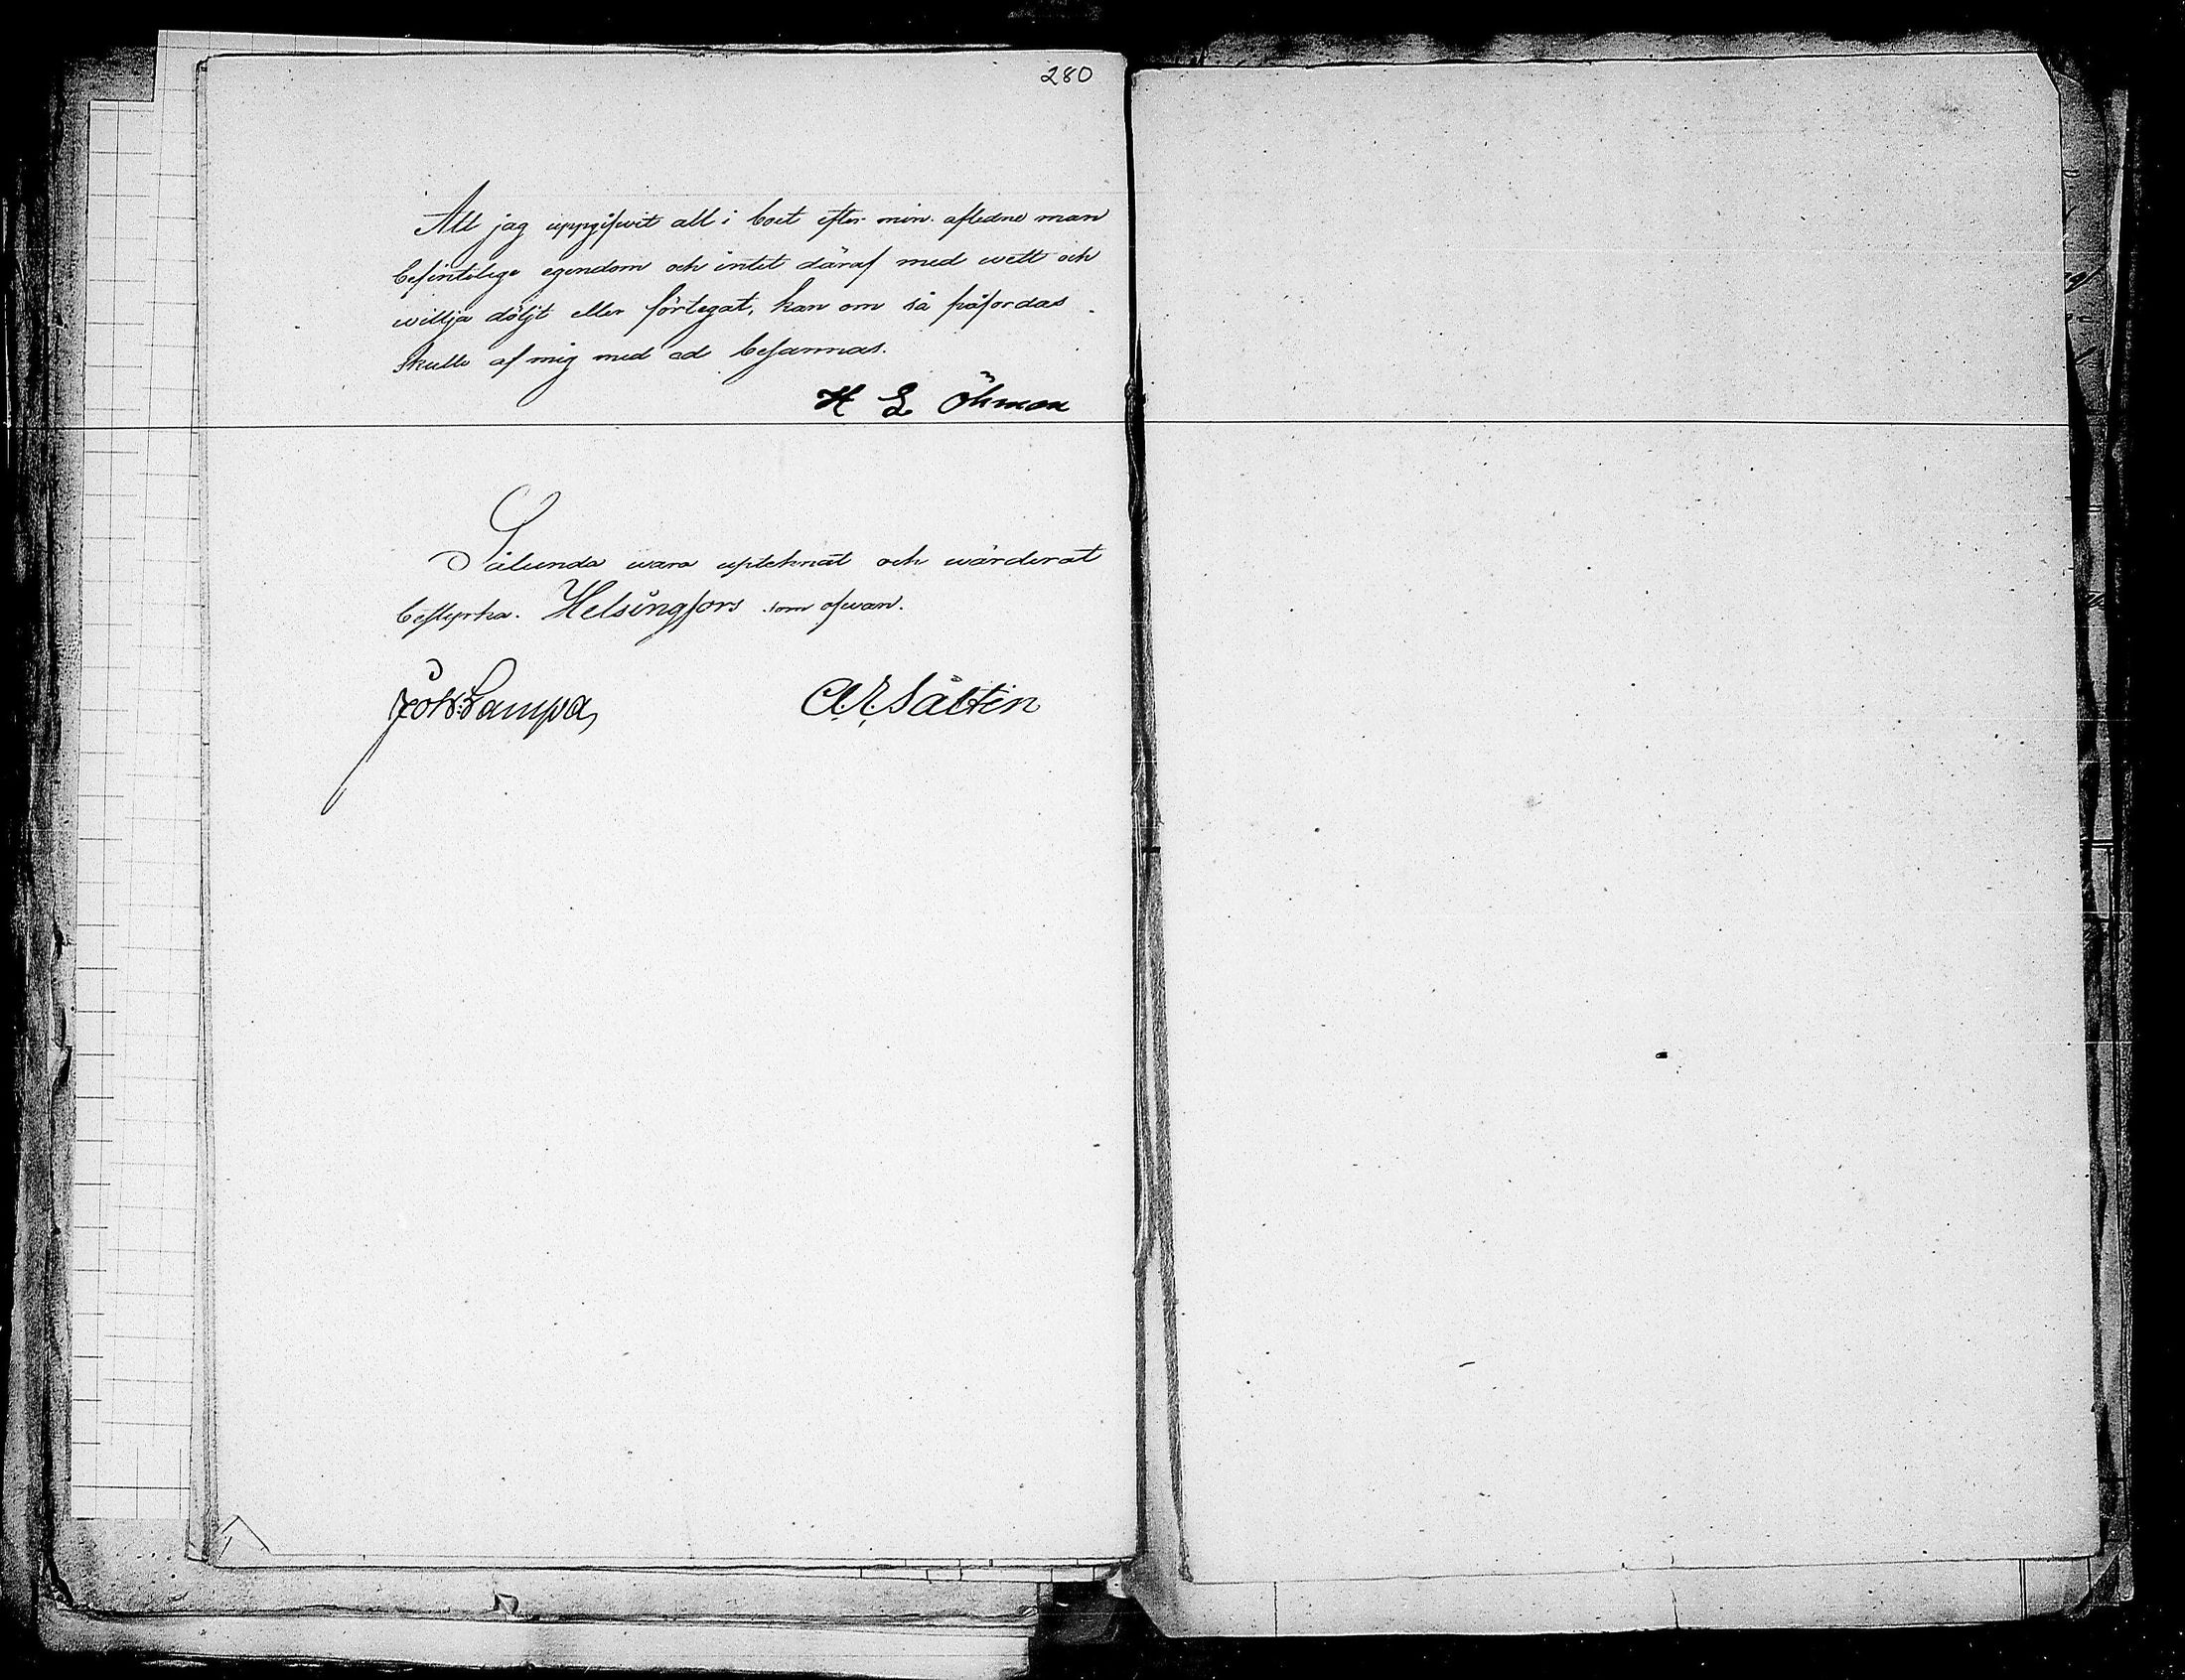 280
Att jag uppgifwit allt i boet efter min aflidne man
befintelige egendom och intet däraf med wett och
willja döljt eller förtegat, kan om så påfordas
skulle af mig med ed besannas.
H E Öhman
Sålunda wara uptehnat och wärderat
bestyrka. Helsingfors som ofwan.
Joh: Lampa,